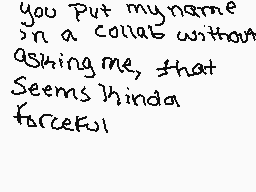 you put my name
in a collab without
asking me, that
seems kinda
forceful